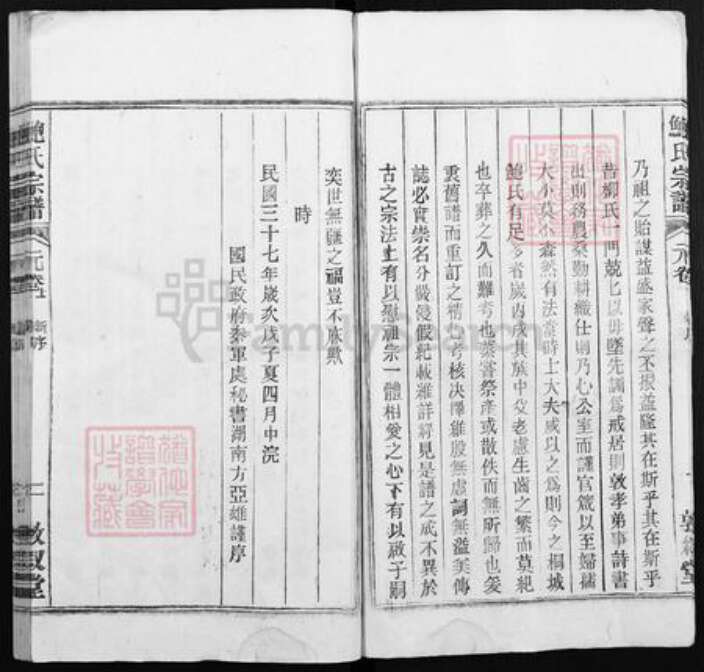 鮑氏宗譜
元卷
乃祖之貽謀益盛家聲之不振益隆其在斯乎其在斯乎
昔柳氏一門兢兢以毋墜先訓爲戒居則敦孝弟事詩書
出則務農桑勤耕織仕則乃心公室而謹官箴以至婦穉
大小莫不森然有法當時士大夫咸以之爲則今之桐城
鮑氏有足多者歲丙戌其族中父老慮生齒之繁而莫紀
也卒葬之久而難考也蒸嘗祭產或散佚而無所歸也爰
裒舊譜而重訂之精心考核決擇維殷無虛詞無溢美傳
誌必實崇名分嚴侵假紀載維詳將見是譜之成不異於
古之宗法上有以慰祖宗一體相愛之心下有以啟子嗣
奕世無疆之福豈不庥歟
時
民國三十七年歲次戊子夏四月中浣
國民政府參軍處秘書湖南方亞雄謹序
鮑氏宗譜
元卷之一
新序
二
敦叙堂
FamilySearch